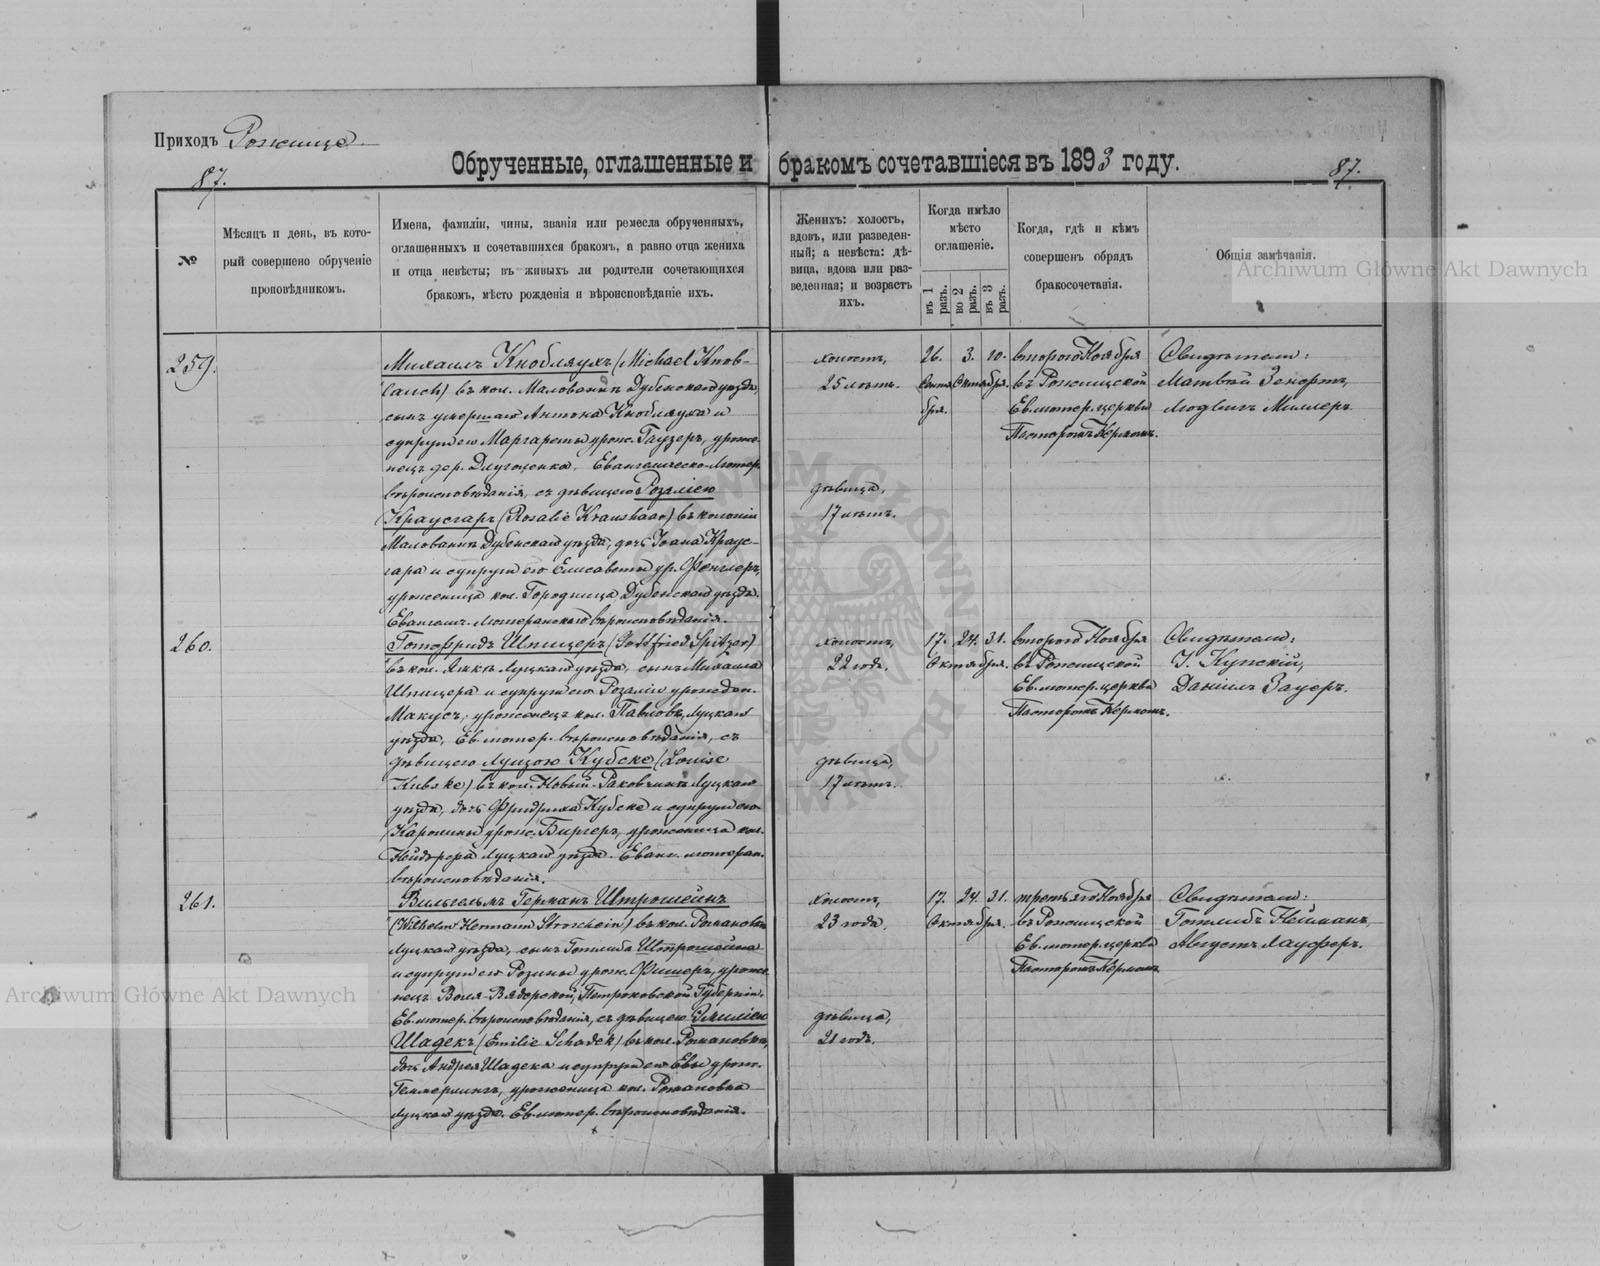 Приходъ Рожище
Обрученные, оглашенные и бракомъ сочетавшіеся въ 1893 году.
87.
87.
№
Мѣсяцъ и день, въ кото-
рый совершено обрученіе
проповѣдникомъ.
Имена, фамиліи, чины, званія или ремесла обрученныхъ,
оглашенныхъ и сочетавшихся бракомъ, а равно отца жениха
и отца невѣсты; въ живыхъ ли родители сочетающихся
бракомъ, мѣсто рожденія и вѣроисповѣданіе ихъ.
Женихъ: холостъ,
вдовъ, или разведен-
ный; а невѣста: дѣ-
вица, вдова или раз-
веденная; и возрастъ
ихъ.
Когда имѣло
мѣсто
оглашеніе.
въ 1 разъ.
во 2 разъ.
въ 3 разъ.
Когда, гдѣ и кѣмъ
совершенъ обрядъ
бракосочетанія.
Общія замѣчанія.
Archiwum Główne Akt Dawnych
259.
Михаилъ Кноблаухъ (Michael Knob-
lauch) въ кол. Малованкѣ Дубенскаго уѣзда,
сынъ умершаго Антона Кноблауха и
супруги его Маргареты урож. Гаузеръ, уроже-
нецъ дер. Длугоценка, Евангелическо-Лютер.
вѣроисповѣданія, съ дѣвицею Розаліею
Краусгаръ (Rosalie Kraushaar) въ колоніи
Малованкѣ Дубенскаго уѣзда, дочь Іоана Краус-
гара и супруги его Елисаветы ур. Фенглеръ,
уроженица кол. Городница Дубенскаго уѣзда.
Евангел. Лютеранскаго вѣроисповѣданія.
холостъ,
25 лѣтъ.
дѣвица,
17 лѣтъ.
26. 3. 10.
Сентя- Октября.
бря.
второго Ноября
въ Рожищской
Ев. лютер. церкви
Пасторомъ Керномъ.
Свидѣтели:
Матвѣй Зенортъ,
Людвигъ Миллеръ.
260.
Готфридъ Шпицеръ (Gottfried Spitzer)
въ кол. Луцкаго уѣзда, сынъ Михаила
Шпицера и супруги его Розаліи урожден.
Макусъ, уроженецъ кол. Павловка, Луцкаго
уѣзда, Ев. лютер. вѣроисповѣданія, съ
дѣвицею Луизою Кубске (Louise
Kubske) въ кол. Новый-Раковчинъ Луцкаго
уѣзда, дочь Фридриха Кубске и супруги его
Каролины урож. Биргеръ, уроженица кол.
Нейдорфа Луцкаго уѣзда. Еванг. лютеран.
вѣроисповѣданія.
холостъ,
22 годъ.
дѣвица,
17 лѣтъ.
17. 24. 31.
Октября.
второго Ноября
въ Рожищской
Ев. лютер. церкви
Пасторомъ Керномъ.
Свидѣтели:
І. Купскій,
Даніилъ Зауеръ.
261.
Вильгельмъ Германъ Штрошейнъ
(Wilhelm Hermann Stroschein) въ кол. Романовкѣ
Луцкаго уѣзда, сынъ Готлиба Штрошейна
и супруги его Розины урож. Фишеръ, уроже-
нецъ Воля-Вядерской, Петроковской Губерніи.
Ев. лютер. вѣроисповѣданія, съ дѣвицею Эмиліею
Шадекъ (Emilie Schadek) въ кол. Романовкѣ,
дочь Андрея Шадека и супруги его Евы урож.
Геммерлингъ, уроженица кол. Романовка
Луцкаго уѣзда. Ев. лютер. вѣроисповѣданія.
холостъ,
23 года.
дѣвица,
21 годъ.
17. 24. 31.
Октября.
третьяго Ноября
въ Рожищской
Ев. лютер. церкви
Пасторомъ Керномъ.
Свидѣтели:
Готлибъ Нейманъ,
Августъ Лауферъ.
Archiwum Główne Akt Dawnych